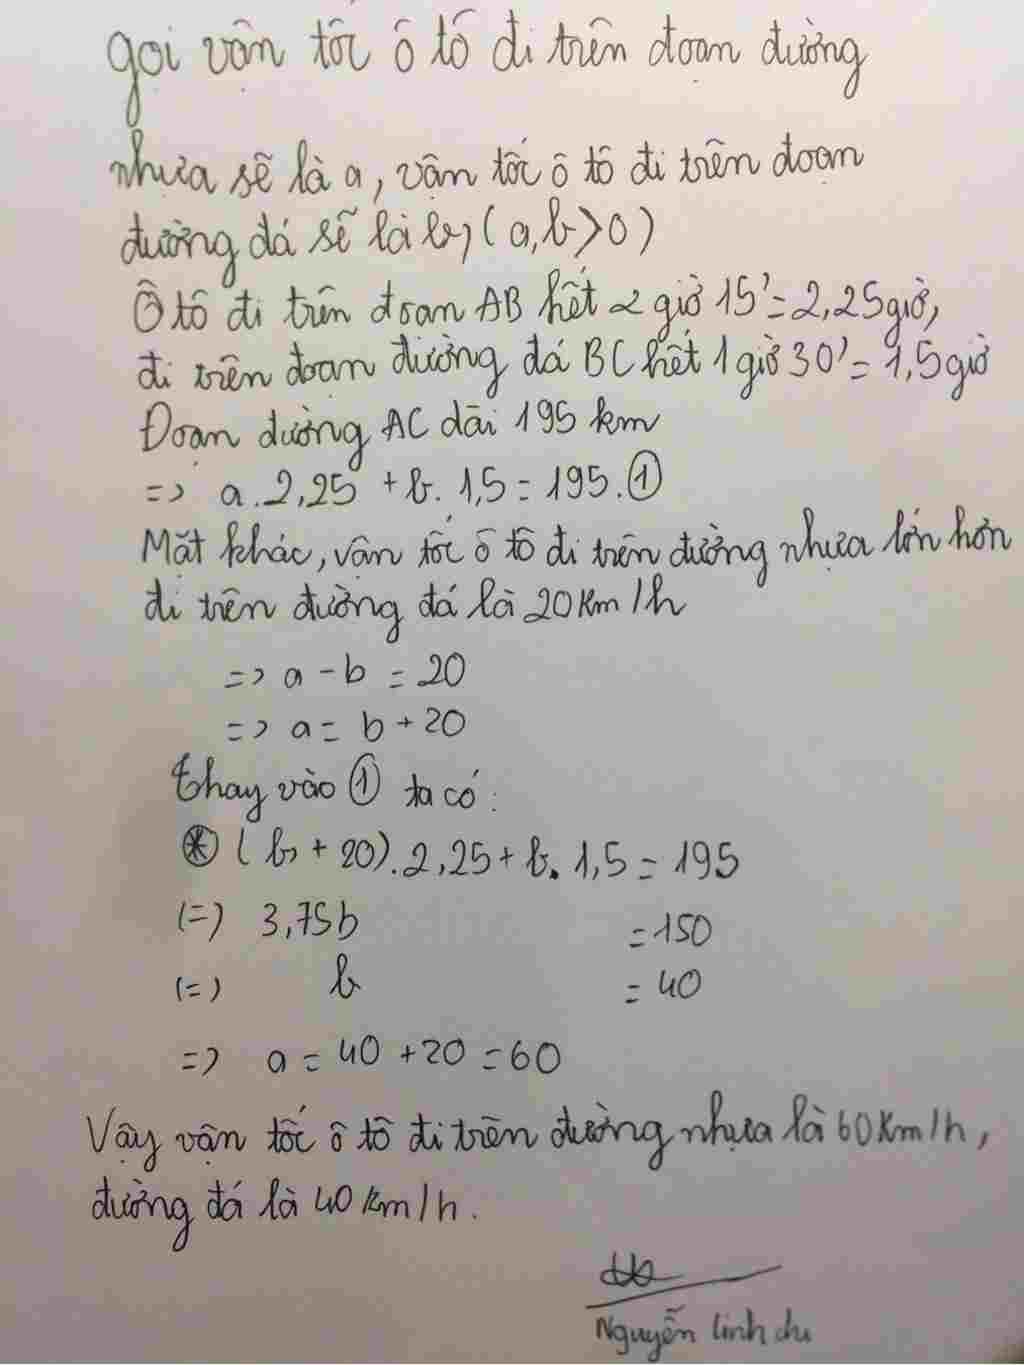 gọi vận tốc ô tô đi trên đoạn đường
nhựa sẽ là a, vận tốc ô tô đi trên đoạn
đường đá sẽ là b, (a,b>0)
Ô tô đi trên đoạn AB hết 2 giờ 15' = 2,25 giờ,
đi trên đoạn đường đá BC hết 1 giờ 30' = 1,5 giờ
Đoạn đường AC dài 195 km
=> a.2,25 + b. 1,5 = 195. ①
Mặt khác, vận tốc ô tô đi trên đường nhựa lớn hơn
đi trên đường đá là 20 Km/h
=> a - b = 20
=> a = b + 20
Thay vào ① ta có:
⊛ (b + 20).2,25 + b. 1,5 = 195
(=) 3,75b = 150
(=) b = 40
=> a = 40 + 20 = 60
Vậy vận tốc ô tô đi trên đường nhựa là 60 Km/h,
đường đá là 40 Km/h.
Nguyễn linh chi